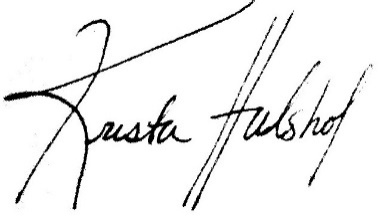 Krista Hulshof